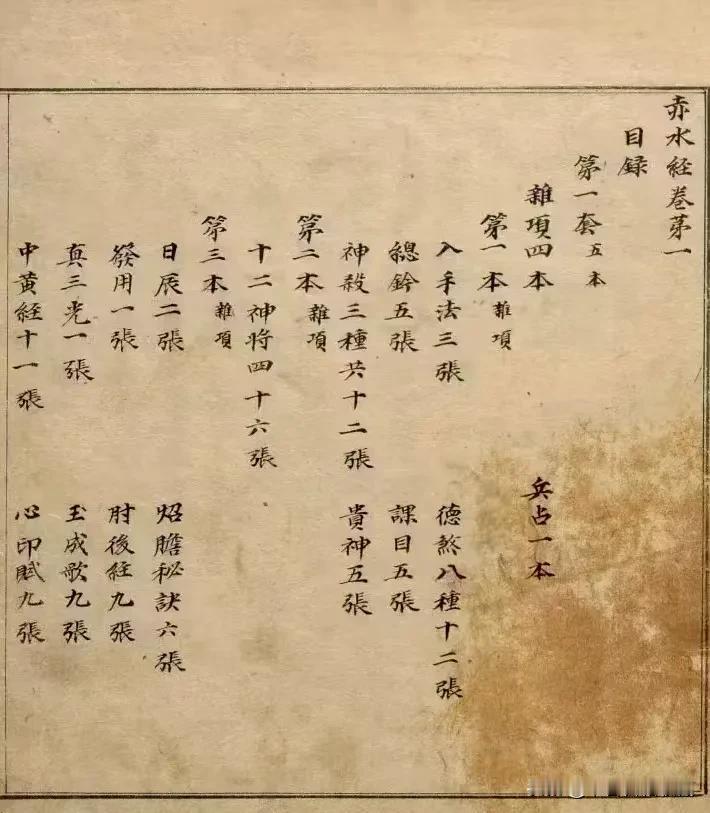 赤水経卷苐一
目録
苐一套五本
雜項四本 兵占一本
苐一本雜項
入手法三張 德煞八種十二張
總鈐五張 課目五張
神殺三種共十二張 貴神五張
苐二本雜項
十二神将四十六張
苐三本雜項
日展二張 炤膽秘訣六張
發用一張 肘後経九張
真三光一張 玉成歌九張
中黄経十一張 心印賦九張